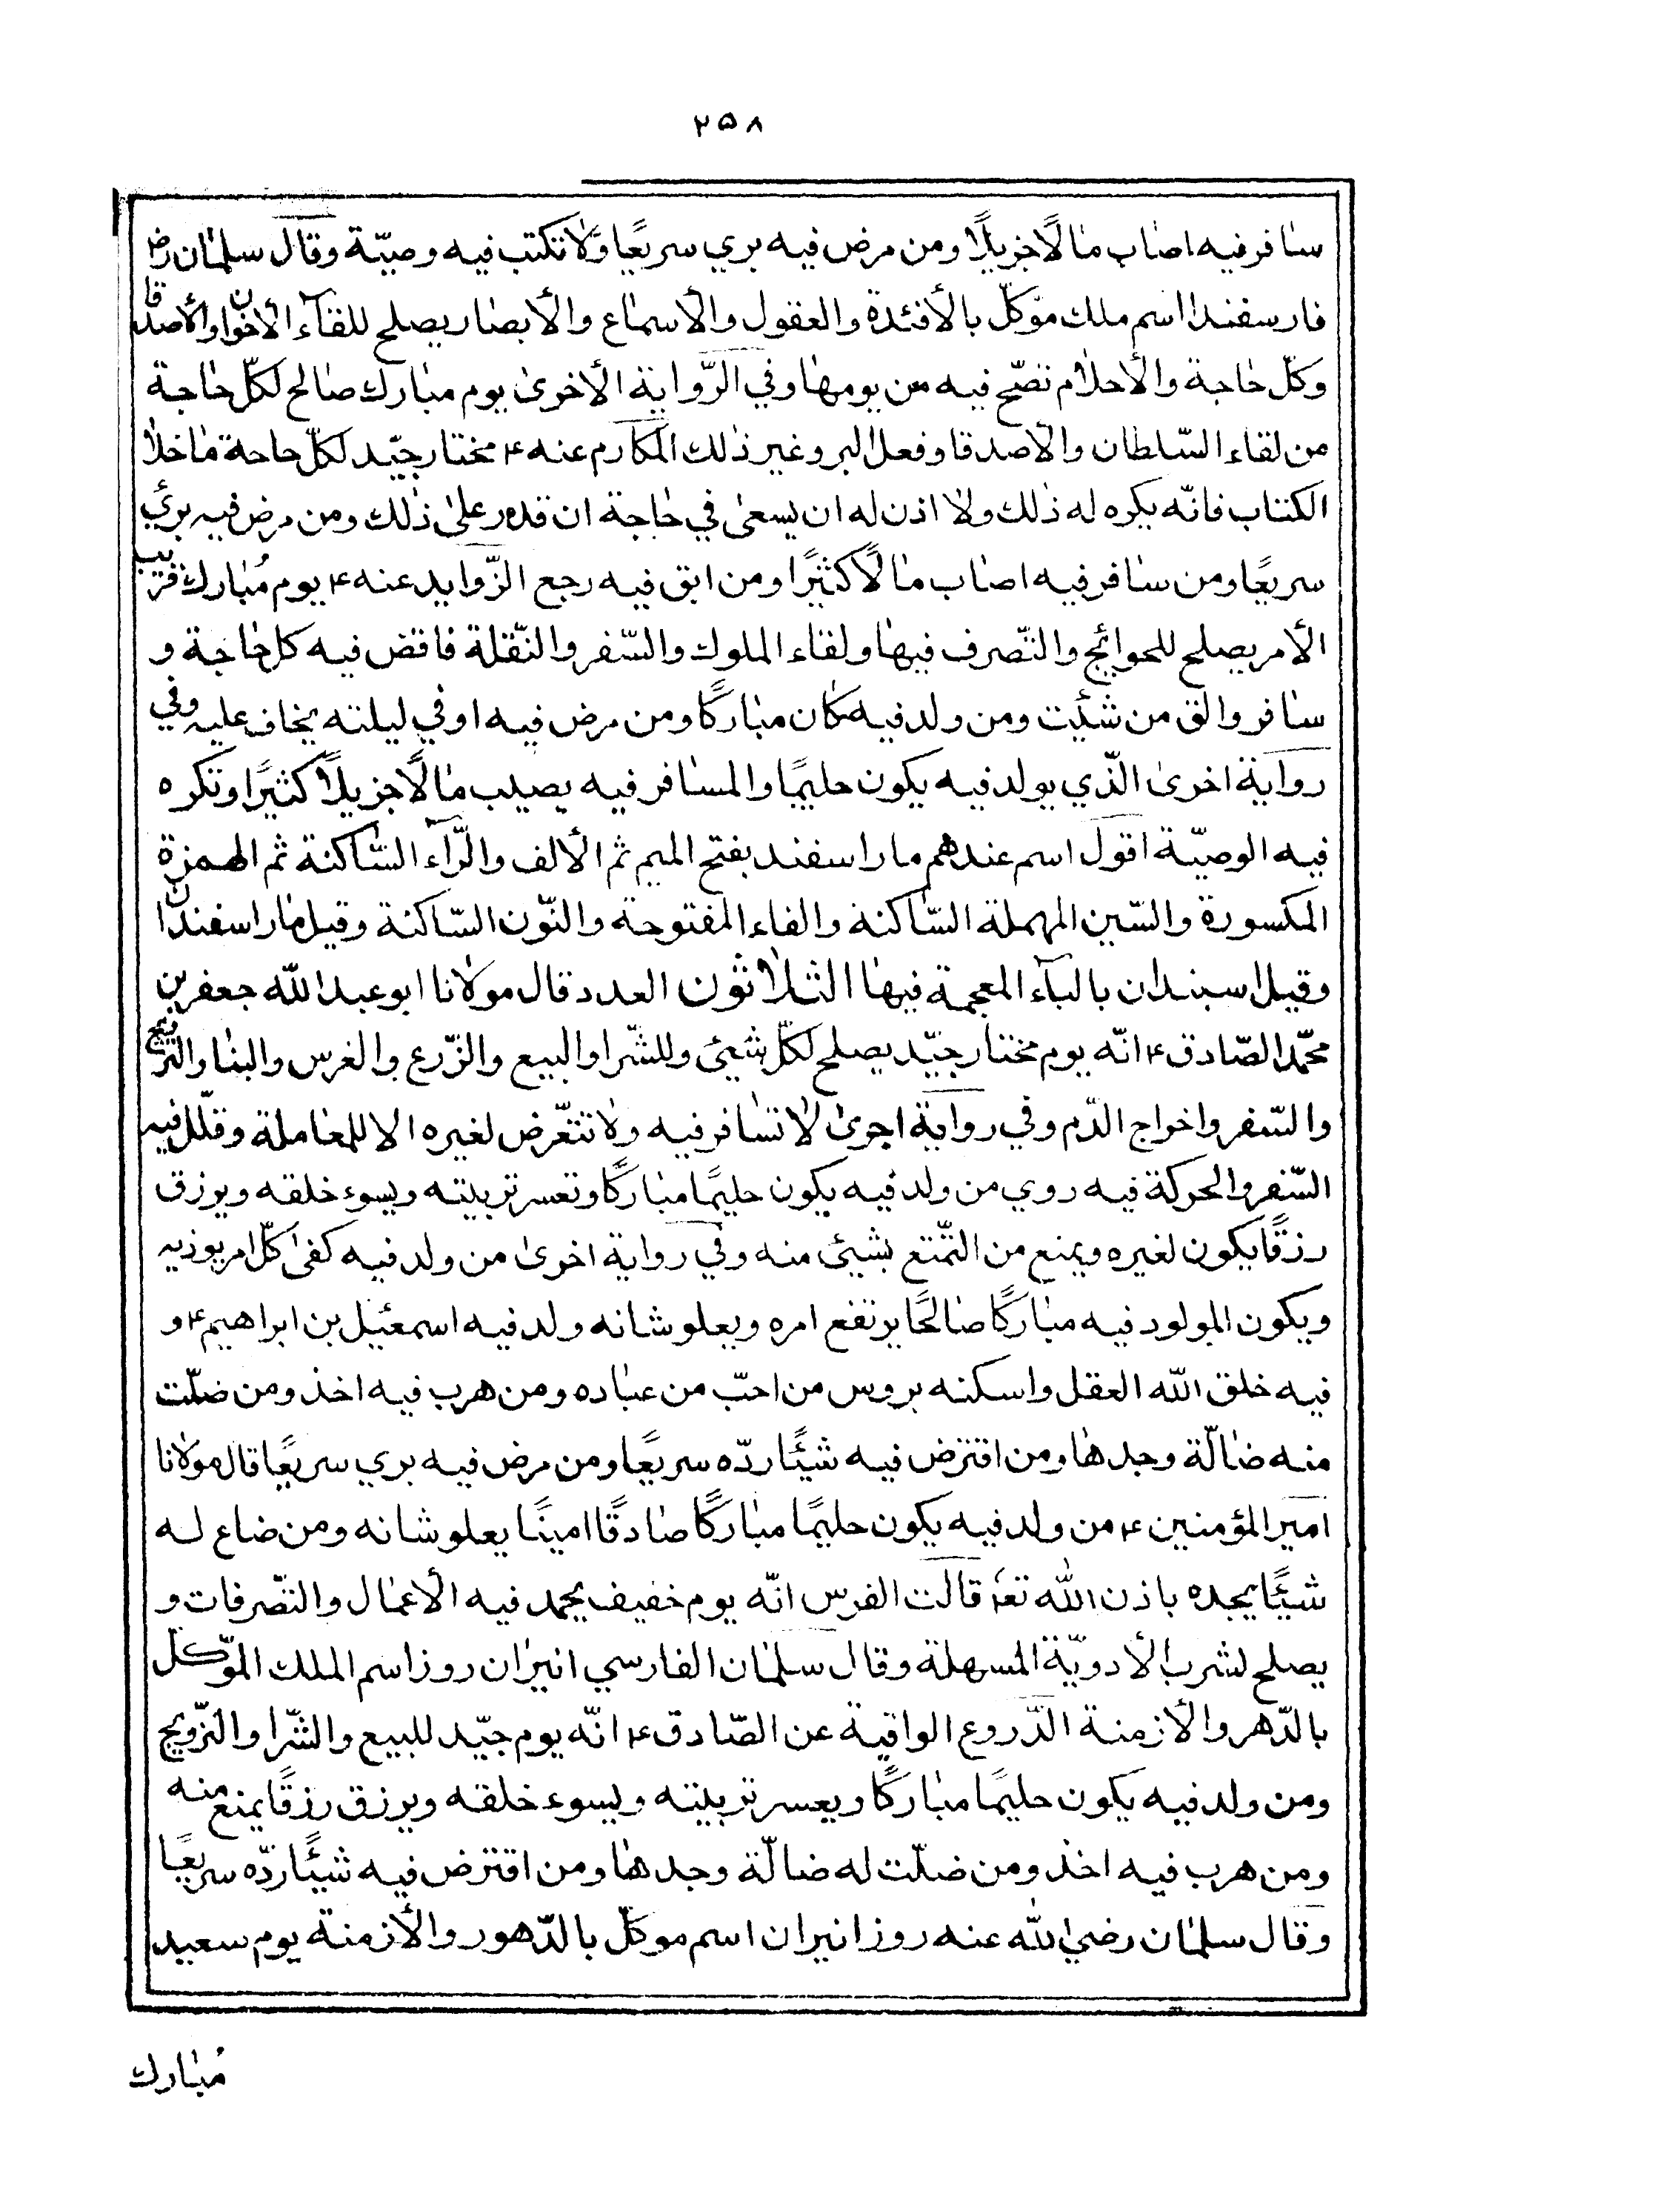 ۲۵۸
سافر فيه اصاب مالًا جزيلًا ومن مرض فيه بري سريعًا ولا تكتب فيه وصيّة وقال سلمان رض
فارسفندا اسم ملك موّكل بالأفئدة والعقول والأسماع والأبصار يصلح للقآء الأخوان والأصدقا
وكلّ حاجة والأحلام تصّح فيه من يومها وفي الرّواية الأخرى يوم مبارك صالح لكلّ حاجة
من لقاء السّلطان والأصدقا وفعل البر وغير ذلك المكارم عنه ۴ مختار جيّد لكلّ حاحة ماخلا
الكتاب فانّه يكره له ذلك ولا اذن له ان يسعى في حاجة ان قدر على ذلك ومن مرض فيه برئ
سريعًا ومن سافر فيه اصاب مالًا كثيرًا ومن ابق فيه رجع الزّوايد عنه ۴ يوم مُبارك قريب
الأمر يصلح للحوائج والتّصرف فيها ولقاء الملوك والسّفر والنّقلة فاقض فيه كل حاجة و
سافر والق من شئت ومن ولد فيه كان مباركًا ومن مرض فيه او في ليلته يخاف عليه وفي
رواية اخرى الّذي يولد فيه يكون حليمًا والمسافر فيه يصيب مالًا جزيلًا كثيرًا وتكره
فيه الوصيّة اقول اسم عندهم ماراسفند بفتح الميم ثم الألف والرّآء السّاكنة ثم الهمزة
المكسورة والسّين المهملة السّاكنة والفاء المفتوحة والنّون السّاكنة وقيل ماراسفندان
وقيل اسبندان بالبآء المعجمة فيها الثلاثون العدد قال مولانا ابو عبد الله جعفر بن
محمّد الصّادق ۴ انّه يوم مختار جيّد يصلح لكلّ شيئ وللشّرا والبيع والزّرع والغرس والبنا والتزويج
والسّفر واخراج الدّم وفي رواية اجرى لا تسافر فيه ولا تتعّرض لغيره الا للمعاملة وقلّل فيه
السّفر والحركة فيه روي من ولد فيه يكون حليمًا مباركًا وتعسر تربيته ويسوء خلقه ويرزق
رزقًا يكون لغيره ويمنع من التّمتع بشيئ منه وفي رواية اخرى من ولد فيه كفى كلّ امر يوذيه
ويكون المولود فيه مباركًا صالحًا يرتفع امره ويعلو شانه ولد فيه اسمعيل بن ابراهيم ۴ و
فيه خلق الله العقل واسكنه بروس من احبّ من عباده ومن هرب فيه اخذ ومن ضلّت
منه ضالّة وجدها ومن اقترض فيه شيئًا ردّه سريعًا ومن مرض فيه بري سريعًا قال مولانا
امير المؤمنين ۴ من ولد فيه يكون حليمًا مباركًا صادقًا امينًا يعلو شانه ومن ضاع له
شيئًا يجده باذن الله تعۀ قالت الفرس انّه يوم خفيف يحمد فيه الأعمال والتّصرفات و
يصلح لشرب الأدويّة المسهلة وقال سلمان الفارسي انيران روز اسم الملك الموّكل
بالدّهر والأزمنة الدّروع الواقية عن الصّادق ۴ انّه يوم جيّد للبيع والشّرا والتّزويج
ومن ولد فيه يكون حليمًا مباركًا ويعسر تربيته ويسوء خلقه ويرزق رزقًا يمنع منه
ومن هرب فيه اخذ ومن ضلّت له ضالّة وجدها ومن اقترض فيه شيئًا ردّه سريعًا
وقال سلمان رضي الله عنه روز انيران اسم موكّل بالدّهور والأزمنة يوم سعيد
مُبارك